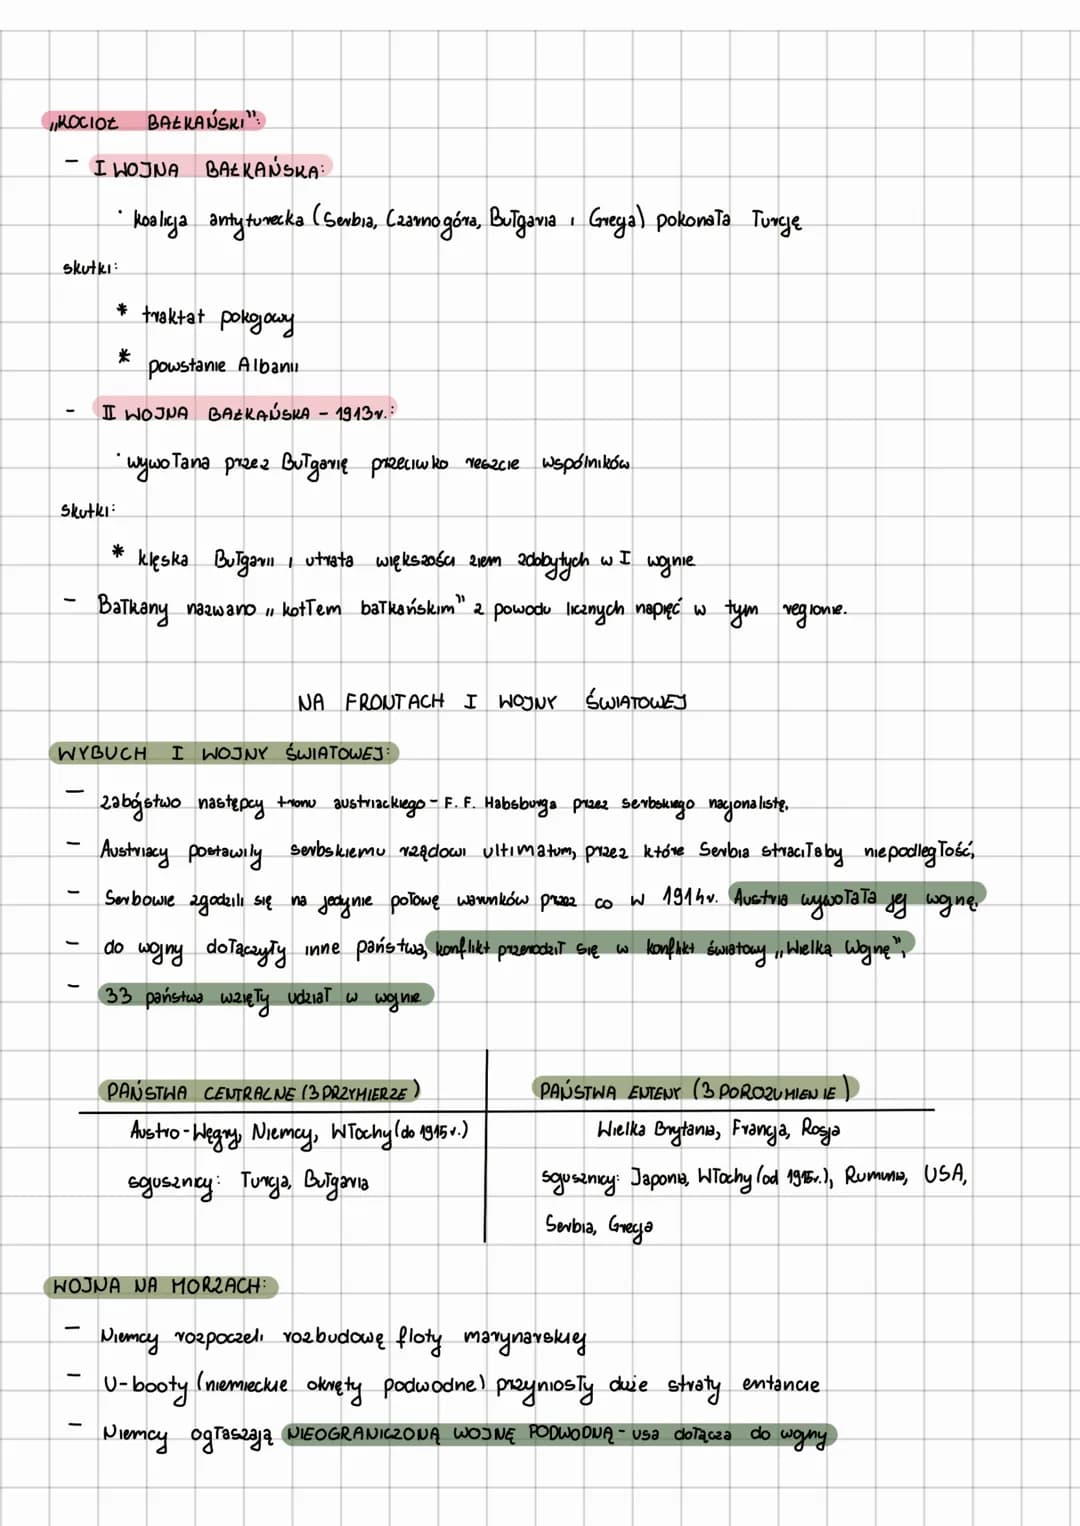 „KOCIOŁ BAŁKAŃSKI":
- I WOJNA BAŁKAŃSKA:
· koalicja antyturecka (Serbia, Czarnogóra, Bułgaria i Grecja) pokonała Turcję
skutki:
* traktat pokojowy
* powstanie Albanii
- II WOJNA BAŁKAŃSKA - 1913r.:
· wywołana przez Bułgarię przeciwko reszcie wspólników
skutki:
* klęska Bułgarii i utrata większości ziem zdobytych w I wojnie
- Bałkany nazwano „kotłem bałkańskim" z powodu licznych napięć w tym regionie.
NA FRONTACH I WOJNY ŚWIATOWEJ
WYBUCH I WOJNY ŚWIATOWEJ:
- zabójstwo następcy tronu austriackiego - F. F. Habsburga przez serbskiego nacjonalistę,
- Austriacy postawily serbskiemu rządowi ultimatum, przez które Serbia straciłaby niepodległość,
- Serbowie zgodzili się na jedynie połowę warunków przez co w 1914r. Austria wywołała jej wojnę,
- do wojny dołączyły inne państwa, konflikt przerodził się w konflikt światowy „Wielką Wojnę",
- 33 państwa wzięły udział w wojnie
PAŃSTWA CENTRALNE (3 PRZYMIERZE)
Austro-Węgry, Niemcy, Włochy (do 1915r.)
sojusznicy: Turcja, Bułgaria
PAŃSTWA ENTENY (3 POROZUMIENIE)
Wielka Brytania, Francja, Rosja
sojusznicy: Japonia, Włochy (od 1915r.), Rumunia, USA,
Serbia, Grecja
WOJNA NA MORZACH:
- Niemcy rozpoczeli rozbudowę floty marynarskiej
- U-booty (niemieckie okręty podwodne) przyniosły duże straty entancie
- Niemcy ogłaszają NIEOGRANICZONĄ WOJNĘ PODWODNĄ - usa dołącza do wojny